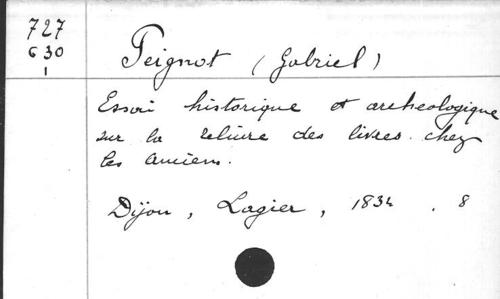 727
630
1
Peignot (Gabriel)
Essai historique et archeologique
sur la reliure des livres chez
les Anciens.
Dijon, Lagier, 1834 . 8